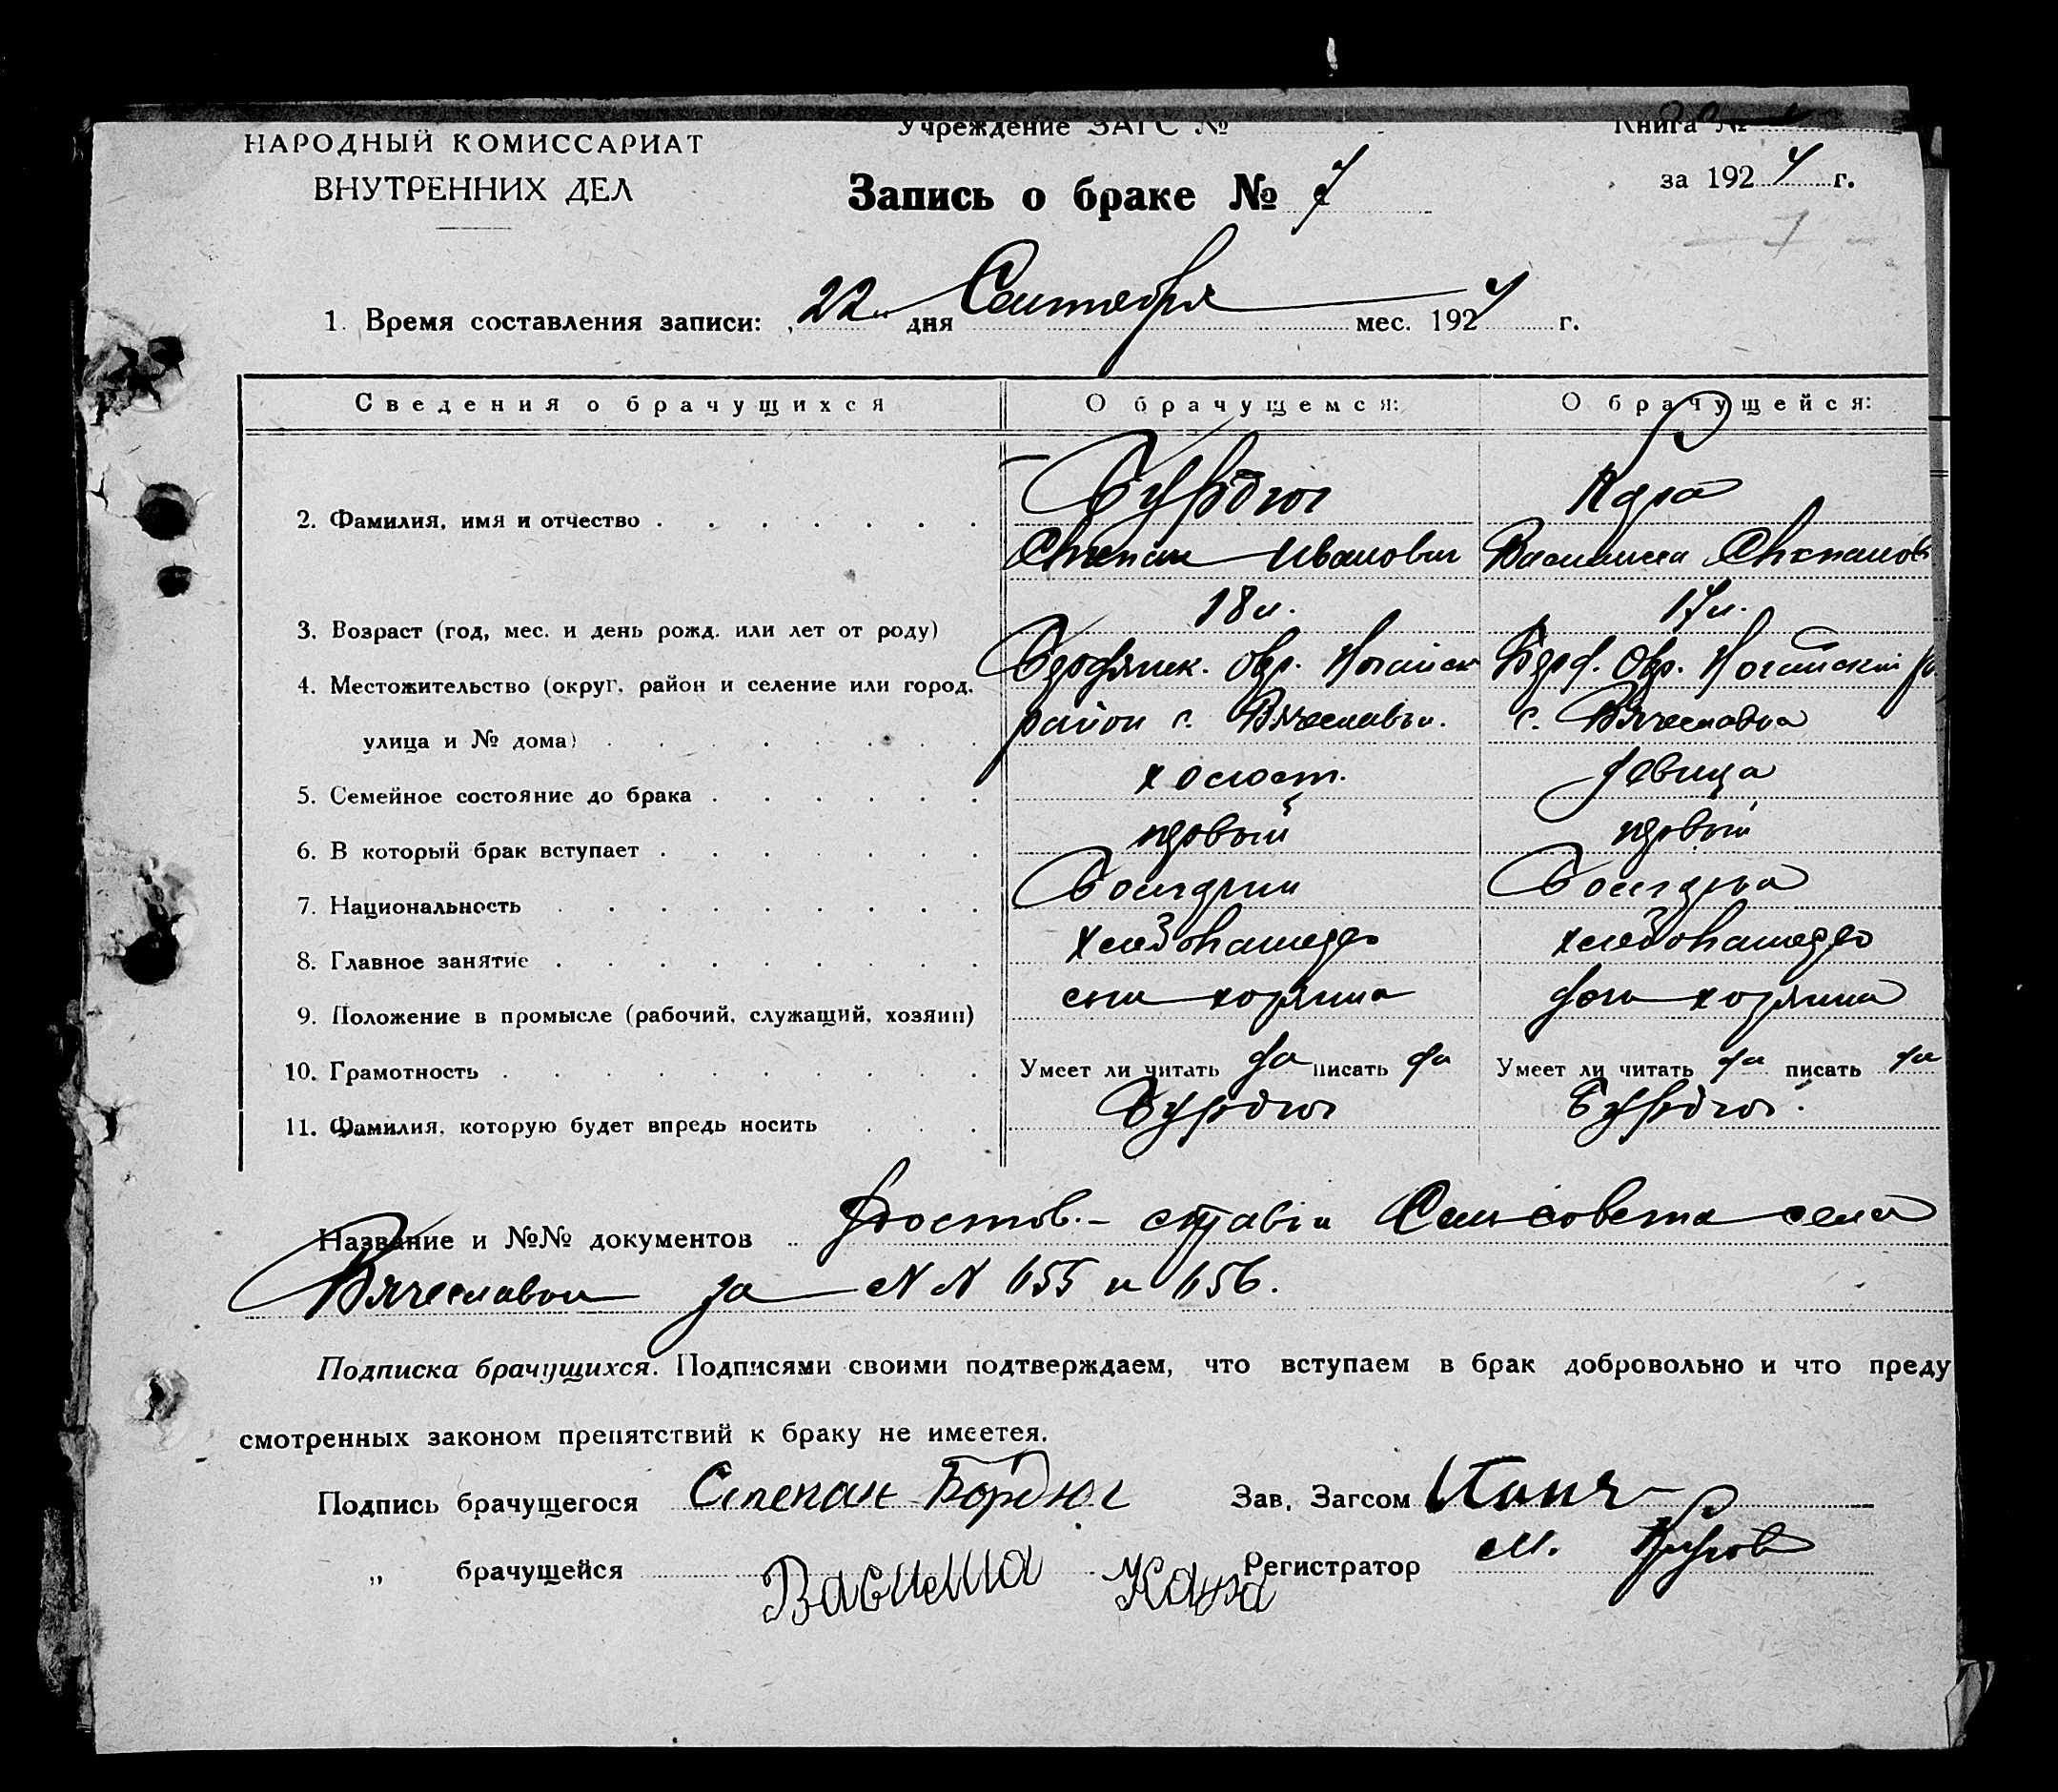 НАРОДНЫЙ КОМИССАРИАТ
ВНУТРЕННИХ ДЕЛ
Учреждение ЗАГС №
Книга №
за 1924 г.
Запись о браке № 7
1. Время составления записи: „22“ дня Сентября мес. 1924 г.
Сведения о брачущихся О брачущемся: О брачущейся:
2. Фамилия, имя и отчество Бурдюг
Степан Иванович Василиса Степанов
3. Возраст (год, мес. и день рожд. или лет от роду) 18 л. 17 л.
4. Местожительство (округ, район и селение или город, Бердянск. Окр. Ногайск Берд. Окр. Ногайский
улица и № дома) район с. Вячеславка. с. Вячеславка
5. Семейное состояние до брака холост. девица
6. В который брак вступает первый первый
7. Национальность Болгарин Болгарка
8. Главное занятие хлебопашество хлебопашество
9. Положение в промысле (рабочий, служащий, хозяин) сын хозяина дочь хозяина
10. Грамотность Умеет ли читать да писать да Умеет ли читать да писать да
11. Фамилия, которую будет впредь носить Бурдюг Бурдюг.
Название и №№ документов Удостов. - справки Сельсовета села
Вячеславки за NN 655 и 656.
Подписка брачущихся. Подписями своими подтверждаем, что вступаем в брак добровольно и что преду
смотренных законом препятствий к браку не имеетея.
Подпись брачущегося Степан Бордюг Зав. Загсом
„ брачущейся Василиса Регистратор М.